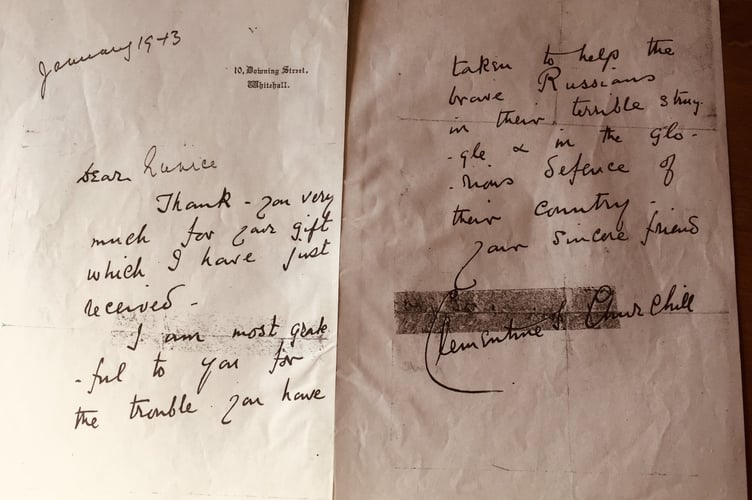 January 1943
10, Downing Street,
Whitehall.
Dear Eunice
Thank-you very
much for your gift
which I have just
received-
I am most grate
-ful to you for
the trouble you have
taken to help the
brave Russians
in their terrible strug-
-gle & in the glo-
-rious defence of
their country-
Your sincere friend
Clementine S. Churchill